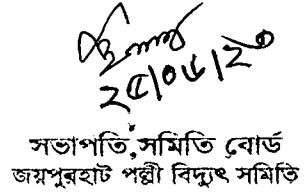 ২৫/০৬/২৩
সভাপতি, সমিতি বোর্ড
জয়পুরহাট পল্লী বিদ্যুৎ সমিতি